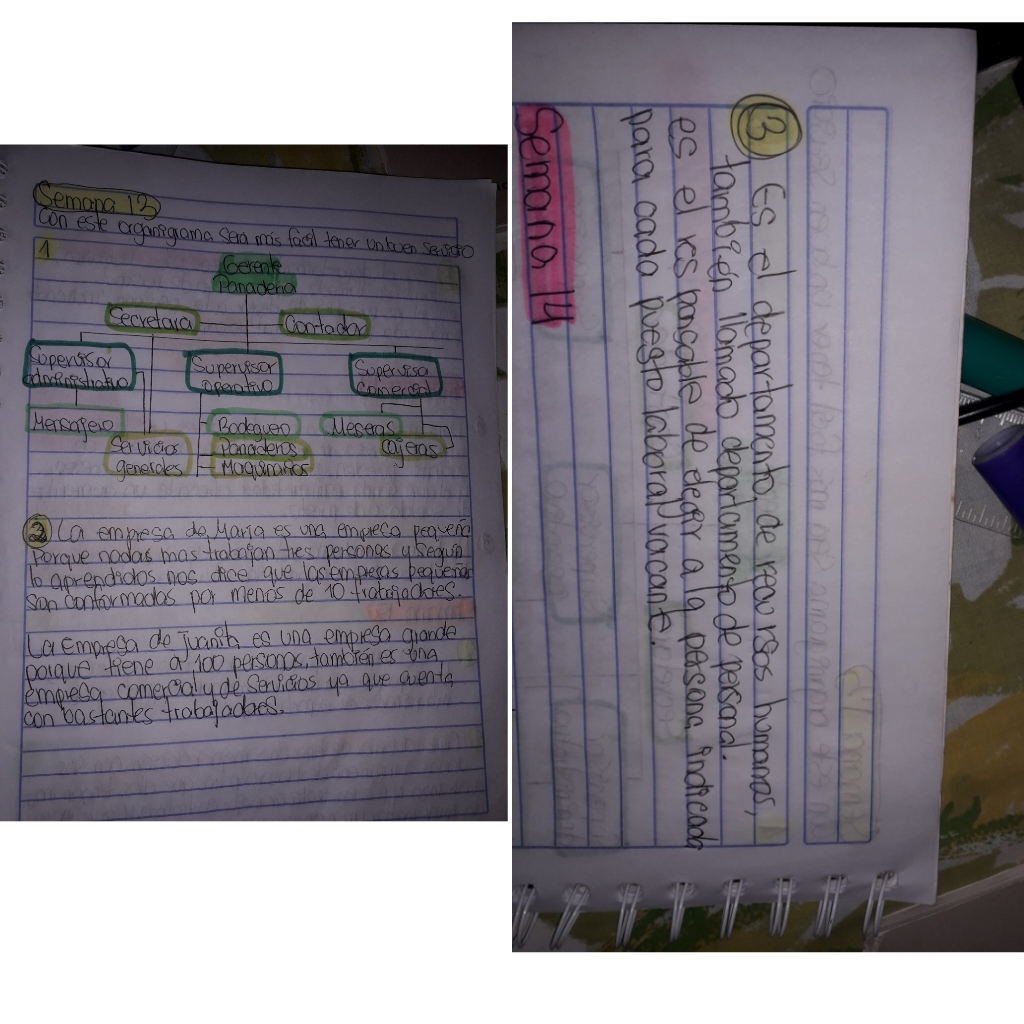 Semana 12
Con este organigrama sera más fácil tener un buen servicio
1
Gerente
Panaderia
Secretara
Contador
Supervisor
administrativo
Supervisor
operativo
Supervisa
comercial
Mensajero
Servicios
generales
Bodeguero
Panaderos
Maquinarios
Meseras
Cajeras
2 La empresa de Maria es una empresa pequeña
Porque nadas mas trabajan tres personas y según
lo aprendidos nos dice que las empesas pequeñas
son conformadas por menos de 10 trabajadores.
La Empresa de Juanita es una empresa grande
porque tiene a 100 personas, también es una
empresa comercial y de servicios ya que cuenta
con bastantes trabajadores.
3 Es el departamento de recursos humanos,
también llamado departamento de personal.
es el responsable de elegir a la persona indicada
para cada puesto laboral vacante.
Semana 14